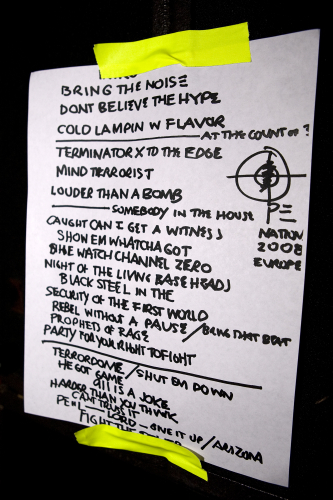 BRING THE NOISE
DONT BELIEVE THE HYPE
COLD LAMPIN W FLAVOR
AT THE COUNT OF ?
TERMINATOR X TO THE EDGE
MIND TERRORIST
LOUDER THAN A BOMB
SOMEBODY IN THE HOUSE
PE
NATION
2008
EUROPE
CAUGHT CAN I GET A WITNESS
SHOW EM WHATCHA GOT
WATCH CHANNEL ZERO
NIGHT OF THE LIVING BASEHEADS
BLACK STEEL IN THE
SECURITY OF THE FIRST WORLD
REBEL WITHOUT A PAUSE / BRING THAT BEAT
PROPHETS OF RAGE
PARTY FOR YOUR RIGHT TO FIGHT
TERRORDOME / SHUT EM DOWN
HE GOT GAME
911 IS A JOKE
HARDER THAN YOU THINK
CANT TRUSS IT
LORD - GIVE IT UP / ARIZONA
FIGHT THE